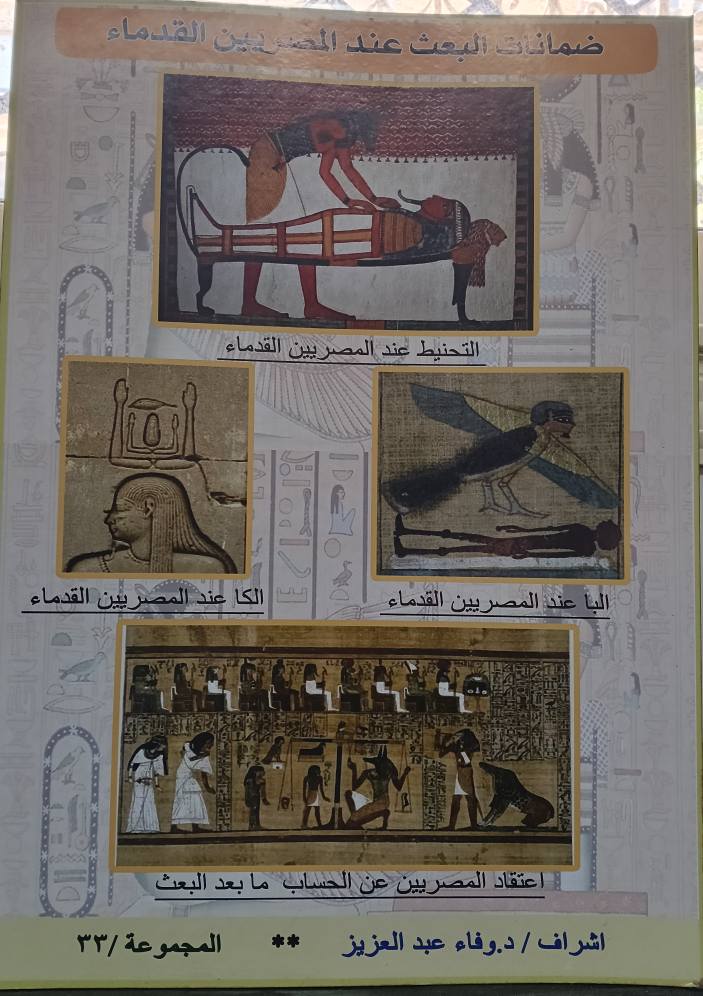 ضمانات البعث عند المصريين القدماء
التحنيط عند المصريين القدماء
البا عند المصريين القدماء
الكا عند المصريين القدماء
اعتقاد المصريين عن الحساب ما بعد البعث
اشراف / د.وفاء عبد العزيز ** المجموعة /٣٣